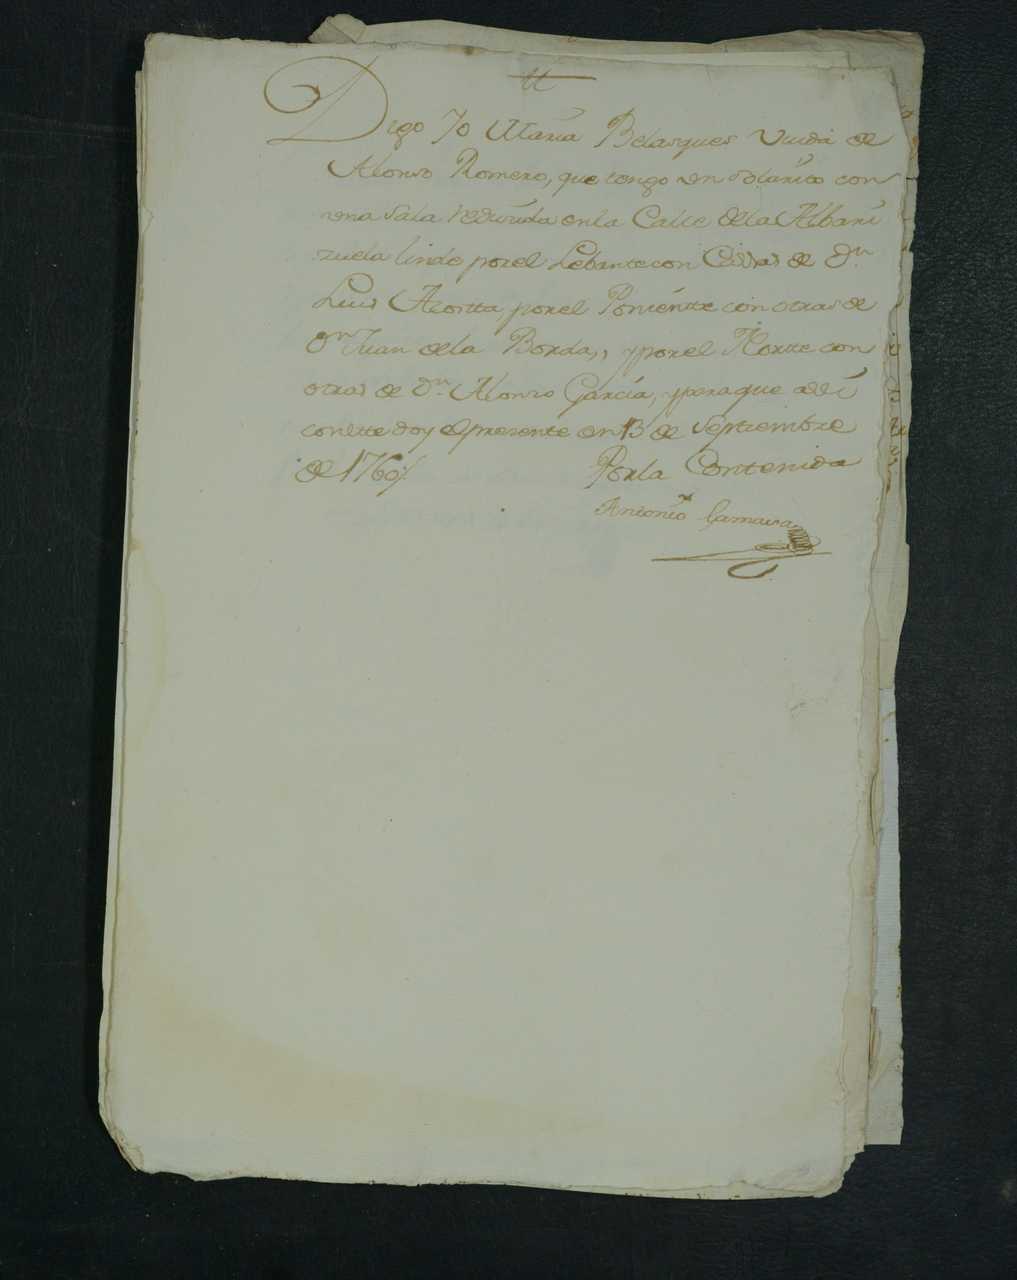 Digo Yo Maria Belasques Viuda de
Alonso Romero, que tengo un solarito con
una sala reducida en la Calle de la Albari
zuela linde por el Lebante con Cassas de Dn
Luis Acostta, por el Ponientte con otras de
Dn Juan de la Borda, y por el Nortte con
otras de Dn Alonso Garcia, y para que assi
constte doy el presente en 13 de Septiembre
de 1760
Por la Contenida
Antonio Gamarra